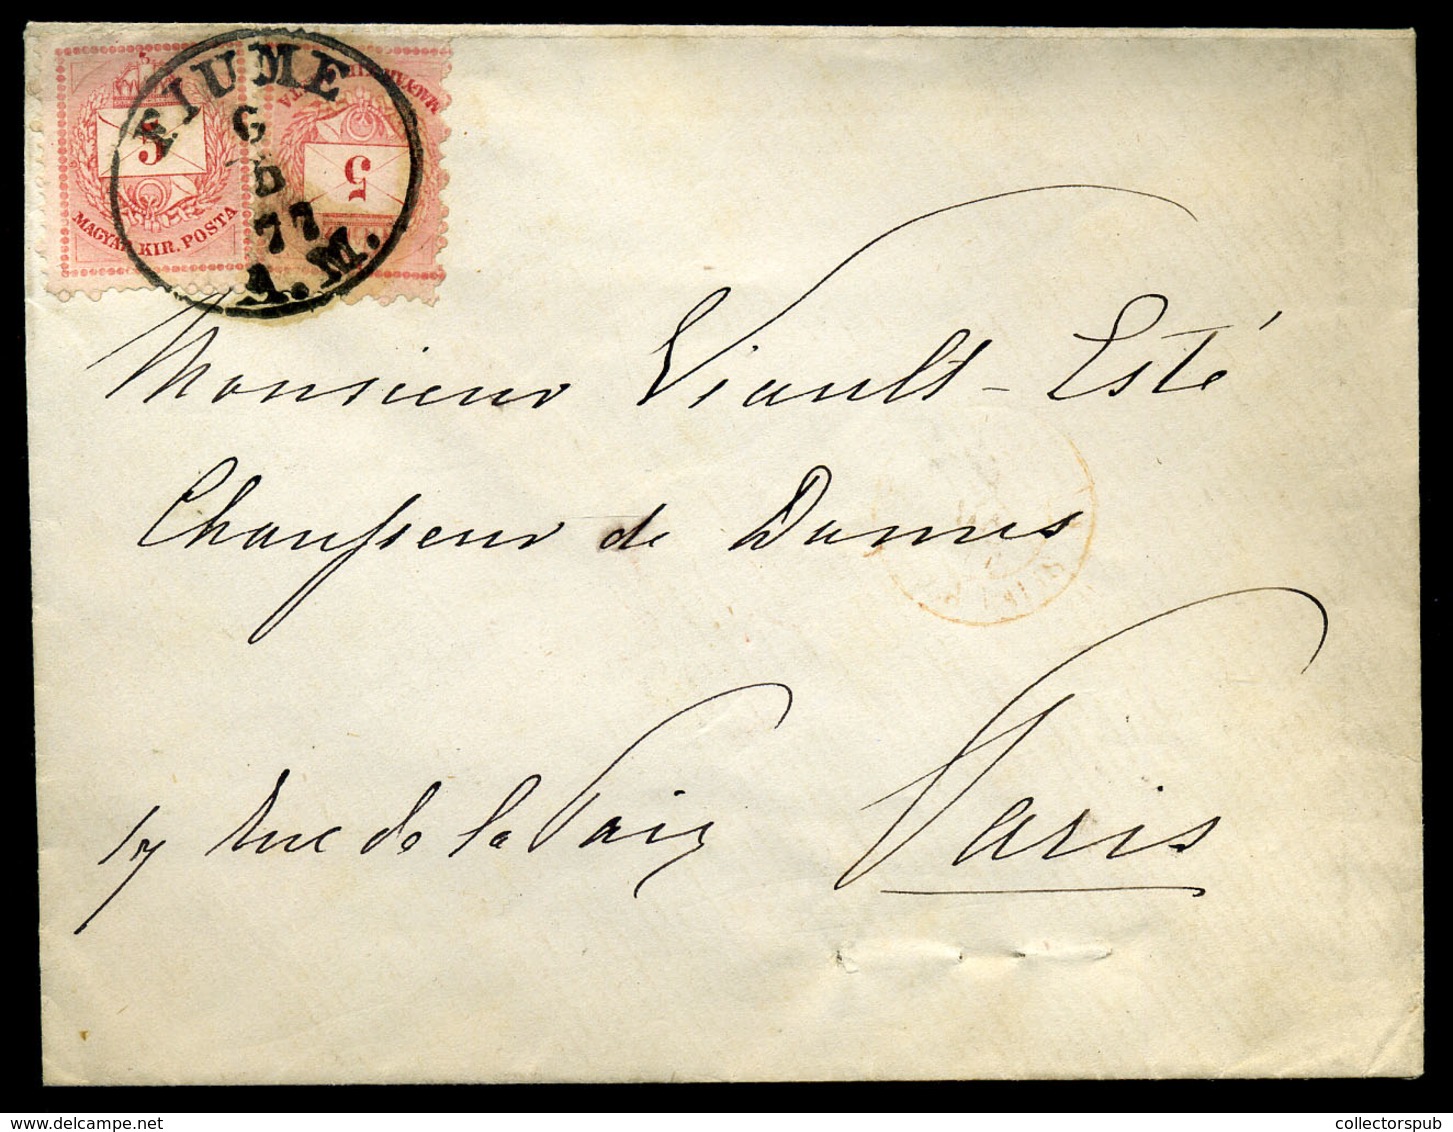 FIUME
6
D
77
A.M.
5
MAGYAR KIR. POSTA
5
Monsieur Viault-Esté
Chausseur de Dames
17 Rue de la Paix Paris
delcampe.net
collectorspub